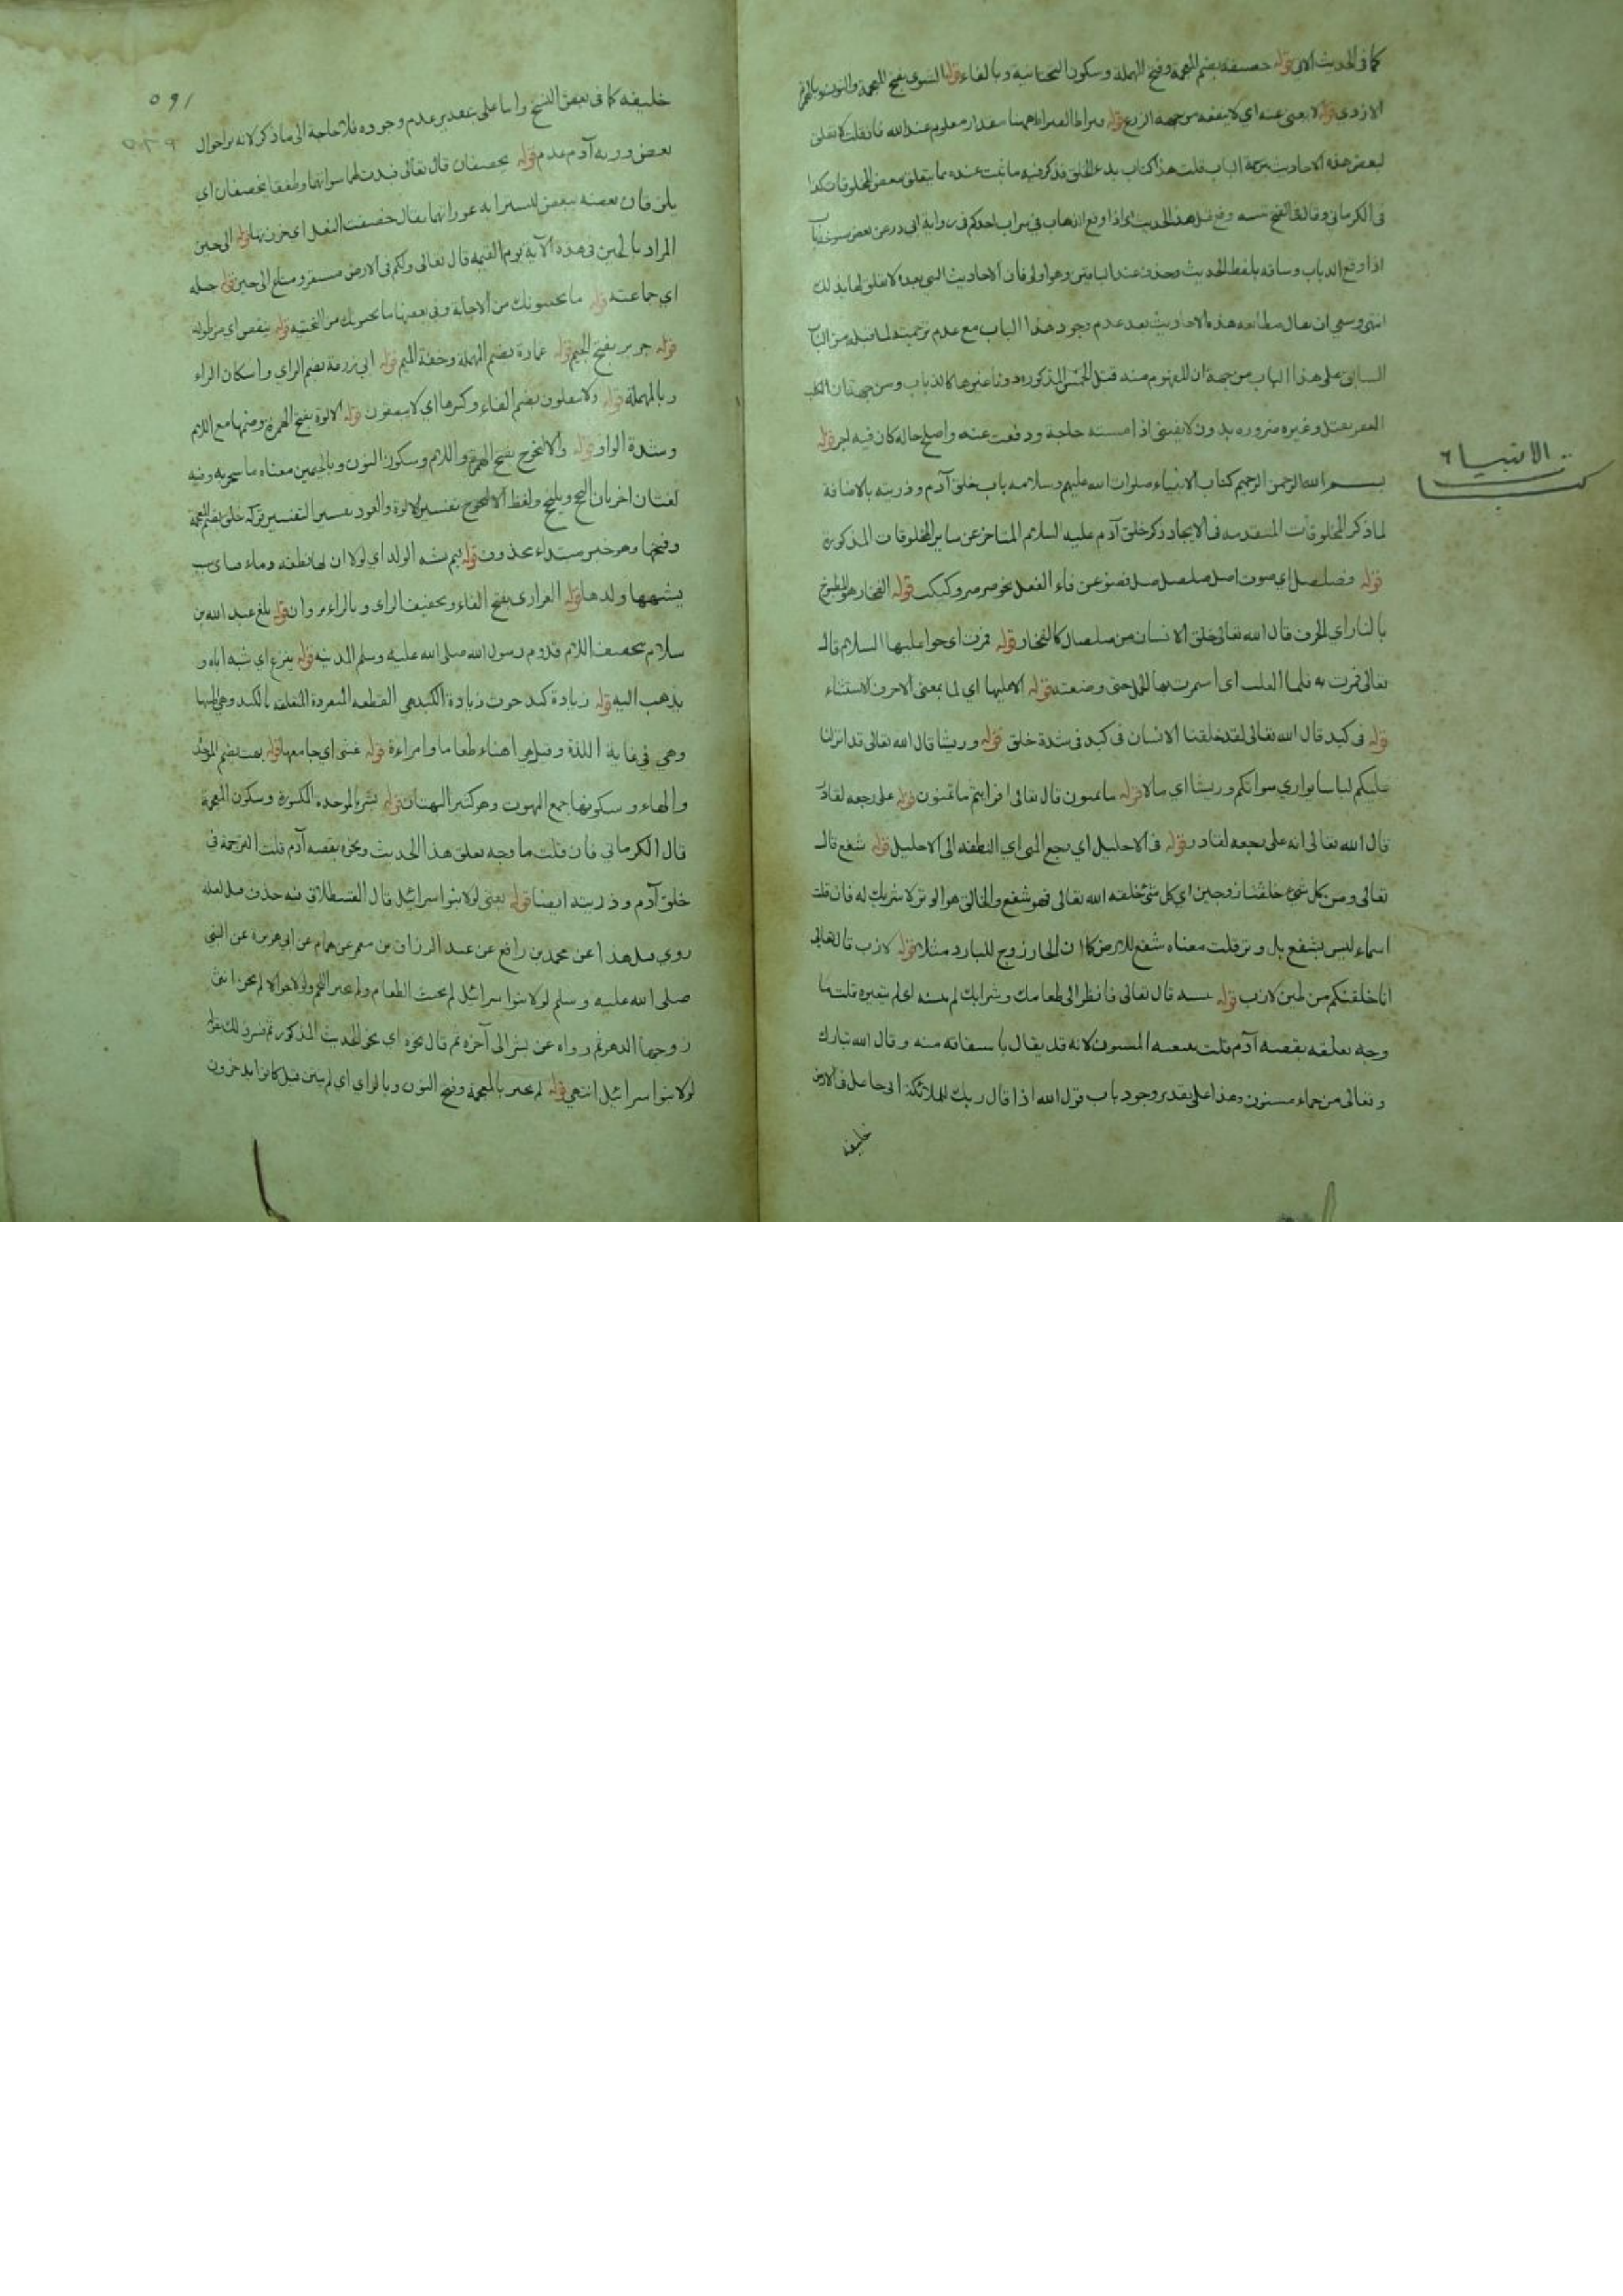 كما في الحديث الآتي قوله خصيفة بضم المعجمة وفتح المهملة وسكون التحتانية وبالفاء قوله الشنوي بفتح المعجمة والنون وبالهمزة
الازدي قوله لا يغني عنه اي لا ينفعه من جهة الزرع قوله قيراط القيراط ههنا مقدار معلوم عند الله فان قلت لا تعلق
لبعض هذه الاحاديث بترجمة الباب قلت هذا كتاب بدء الخلق فذكر فيه ما ثبت عنده مما يتعلق ببعض المخلوقات كذا
في الكرماني وقال في الفتح تنبيه وقع قبل هذا الحديث باب اذا وقع الذباب في شراب احدكم في رواية ابي ذر عن بعض شيوخه باب
اذا وقع الذباب وساقه بلفظ الحديث وحذف عند الباقين وهو اولى فان الاحاديث التي بعده لا تعلق لها بذلك
انتهى ان يقال مطابقة هذه الاحاديث بعد عدم وجود هذا الباب مع عدم ترجمته لما قبله من الباب
السابق على هذا الباب من جهة ان المفهوم منه قتل الخمس المذكورة دون غيرها كالذباب ومن جهة ان الكلب
العقر يقتل وغيره ضروره بدون لا يقتنى اذا مسته حاجة ودفعت عنه واصلح حاله كان فيه اجر قوله
بسم الله الرحمن الرحيم كتاب الانبياء صلوات الله عليهم وسلامه باب خلق آدم وذريته بالاضافة
الانبيا
كتاب
لما ذكر المخلوقات المتقدمة في الايجاد ذكر خلق آدم عليه السلام المتاخر عن ساير المخلوقات المذكورة
قوله فصلصل اي صوت اصل صلصل صل فضوعف فاء الفعل نحو صرصر وكبكب قوله الفخار هو المطبوخ
بالنار اي الخزف قال الله تعالى خلق الانسان من صلصال كالفخار قوله فمرت اي حوا عليها السلام قال
تعالى فمرت به فلما اثقلت اي استمرت بها الحمل حتى وضعته قوله لما عليها اي لما بمعنى الا حرف الاستثناء
قوله في كبد قال الله تعالى لقد خلقنا الانسان في كبد في شدة خلق قوله وريشا قال الله تعالى قد انزلنا
عليكم لباسا يواري سواتكم وريشا اي مالا قوله ما تمنون قال تعالى افرايتم ما تمنون قوله على رجعه لقادر
قال الله تعالى انه على رجعه لقادر قوله في الاحليل اي رجع المني اي النطفة الى الاحليل قوله شفع قال
تعالى ومن كل شيء خلقنا زوجين اي كل شيء خلقه الله تعالى فهو شفع والخالق هو الوتر لا شريك له فان قلت
السماء ليس بشفع بل وتر قلت معناه شفع للارض كما ان الحار زوج للبارد مثلا قوله لازب قال تعالى
انا خلقنكم من طين لازب قوله يتسنه قال تعالى فانظر الى طعامك وشرابك لم يتسنه اي لم يتغيره قلت ما
وجه تعلقه بقصة آدم قلت بتبعية المسنون لانه قد يقال باشتقاقه منه وقال الله تبارك
وتعالى من حماء مسنون وهذا على تقدير وجود باب قول الله اذا قال ربك للملائكة اني جاعل في الارض
خليفه
١٩٥
٥٦٩
خليفه كما في بعض النسخ واما على تقدير عدم وجوده فلا حاجة الى ما ذكر لانه من احوال
بعض ذرية آدم عدم قوله يخصفان قال تعالى فبدت لهما سواتهما وطفقا يخصفان اي
يلزقان بعضه ببعض ليسترا به عوراتهما يقال خصفت النعل اي خرزتها قوله الى حين
المراد بالحين في هذه الآية يوم القيمة قال تعالى ولكم في الارض مستقر ومتاع الى حين قوله جيله
اي جماعته قوله ما يحيونك من الاجابة وفي بعضها ما يحيونك من التحية قوله ينقص اي من طوله
قوله جرير بفتح الجيم قوله عمارة بضم المهملة وخفة الميم قوله ابي زرعة بضم الزاي واسكان الراء
وبالمهملة قوله ولا يتفلون بضم الفاء وكسرها اي لا يبصقون قوله الالوة بفتح الهمزة وضمها مع اللام
وشدة الواو قوله والالنجوج بفتح الهمزة واللام وسكون النون وبالجيمين معناه ما يتبخر به وفيه
لغتان اخريان النجج ويلنجج ولفظ الالنجوج تفسير الالوة والعود تفسير التفسير قوله خلق بضم المعجمة
وفتحها وهو خبر مبتداء محذوف قوله فبم يشبه الولد اي لولا ان لها نطفة وماء فباي سبب
يشبهها ولدها قوله الفزاري بفتح الفاء وتخفيف الزاي وبالراء مروان قوله بلغ عبد الله بن
سلام بتخفيف اللام قدوم رسول الله صلى الله عليه وسلم المدينة قوله ينزع اي شبه اباه و
يذهب اليه قوله زيادة كبد حوت زيادة الكبد هي القطعة المنفردة المتعلقة بالكبد وهي اطيبها
وهي في غاية اللذة وقيل هي اهناء طعاما وامراءة قوله غشي اي جامعها قوله بهت بضم الموحدة
والهاء وسكونها جمع البهوت وهو كثير البهتان قوله بشر الموحدة المكسورة وسكون المعجمة
قال الكرماني فان قلت ما وجه تعلق هذا الحديث ونحوه بقصة آدم قلت الترجمة في
خلق آدم وذريته ايضا قوله يعني لولا بنوا اسرائيل قال القسطلاني فيه حذف قبل لعله
روي قبل هذا عن محمد بن رافع عن عبد الرزاق بن معمر عن همام عن ابي هريرة عن النبي
صلى الله عليه وسلم لولا بنوا اسرائيل لم يخبث الطعام ولم يخنز اللحم ولولا حوا لم تخن انثى
زوجها الدهر ثم رواه عن بشر الى آخره ثم قال نحوه اي نحو الحديث المذكور ثم فسر ذلك بقوله
لولا بنوا اسرائيل انتهى قوله لم يخنز بالمعجمة وفتح النون وبالزاي اي لم ينتن قيل كانوا يدخرون